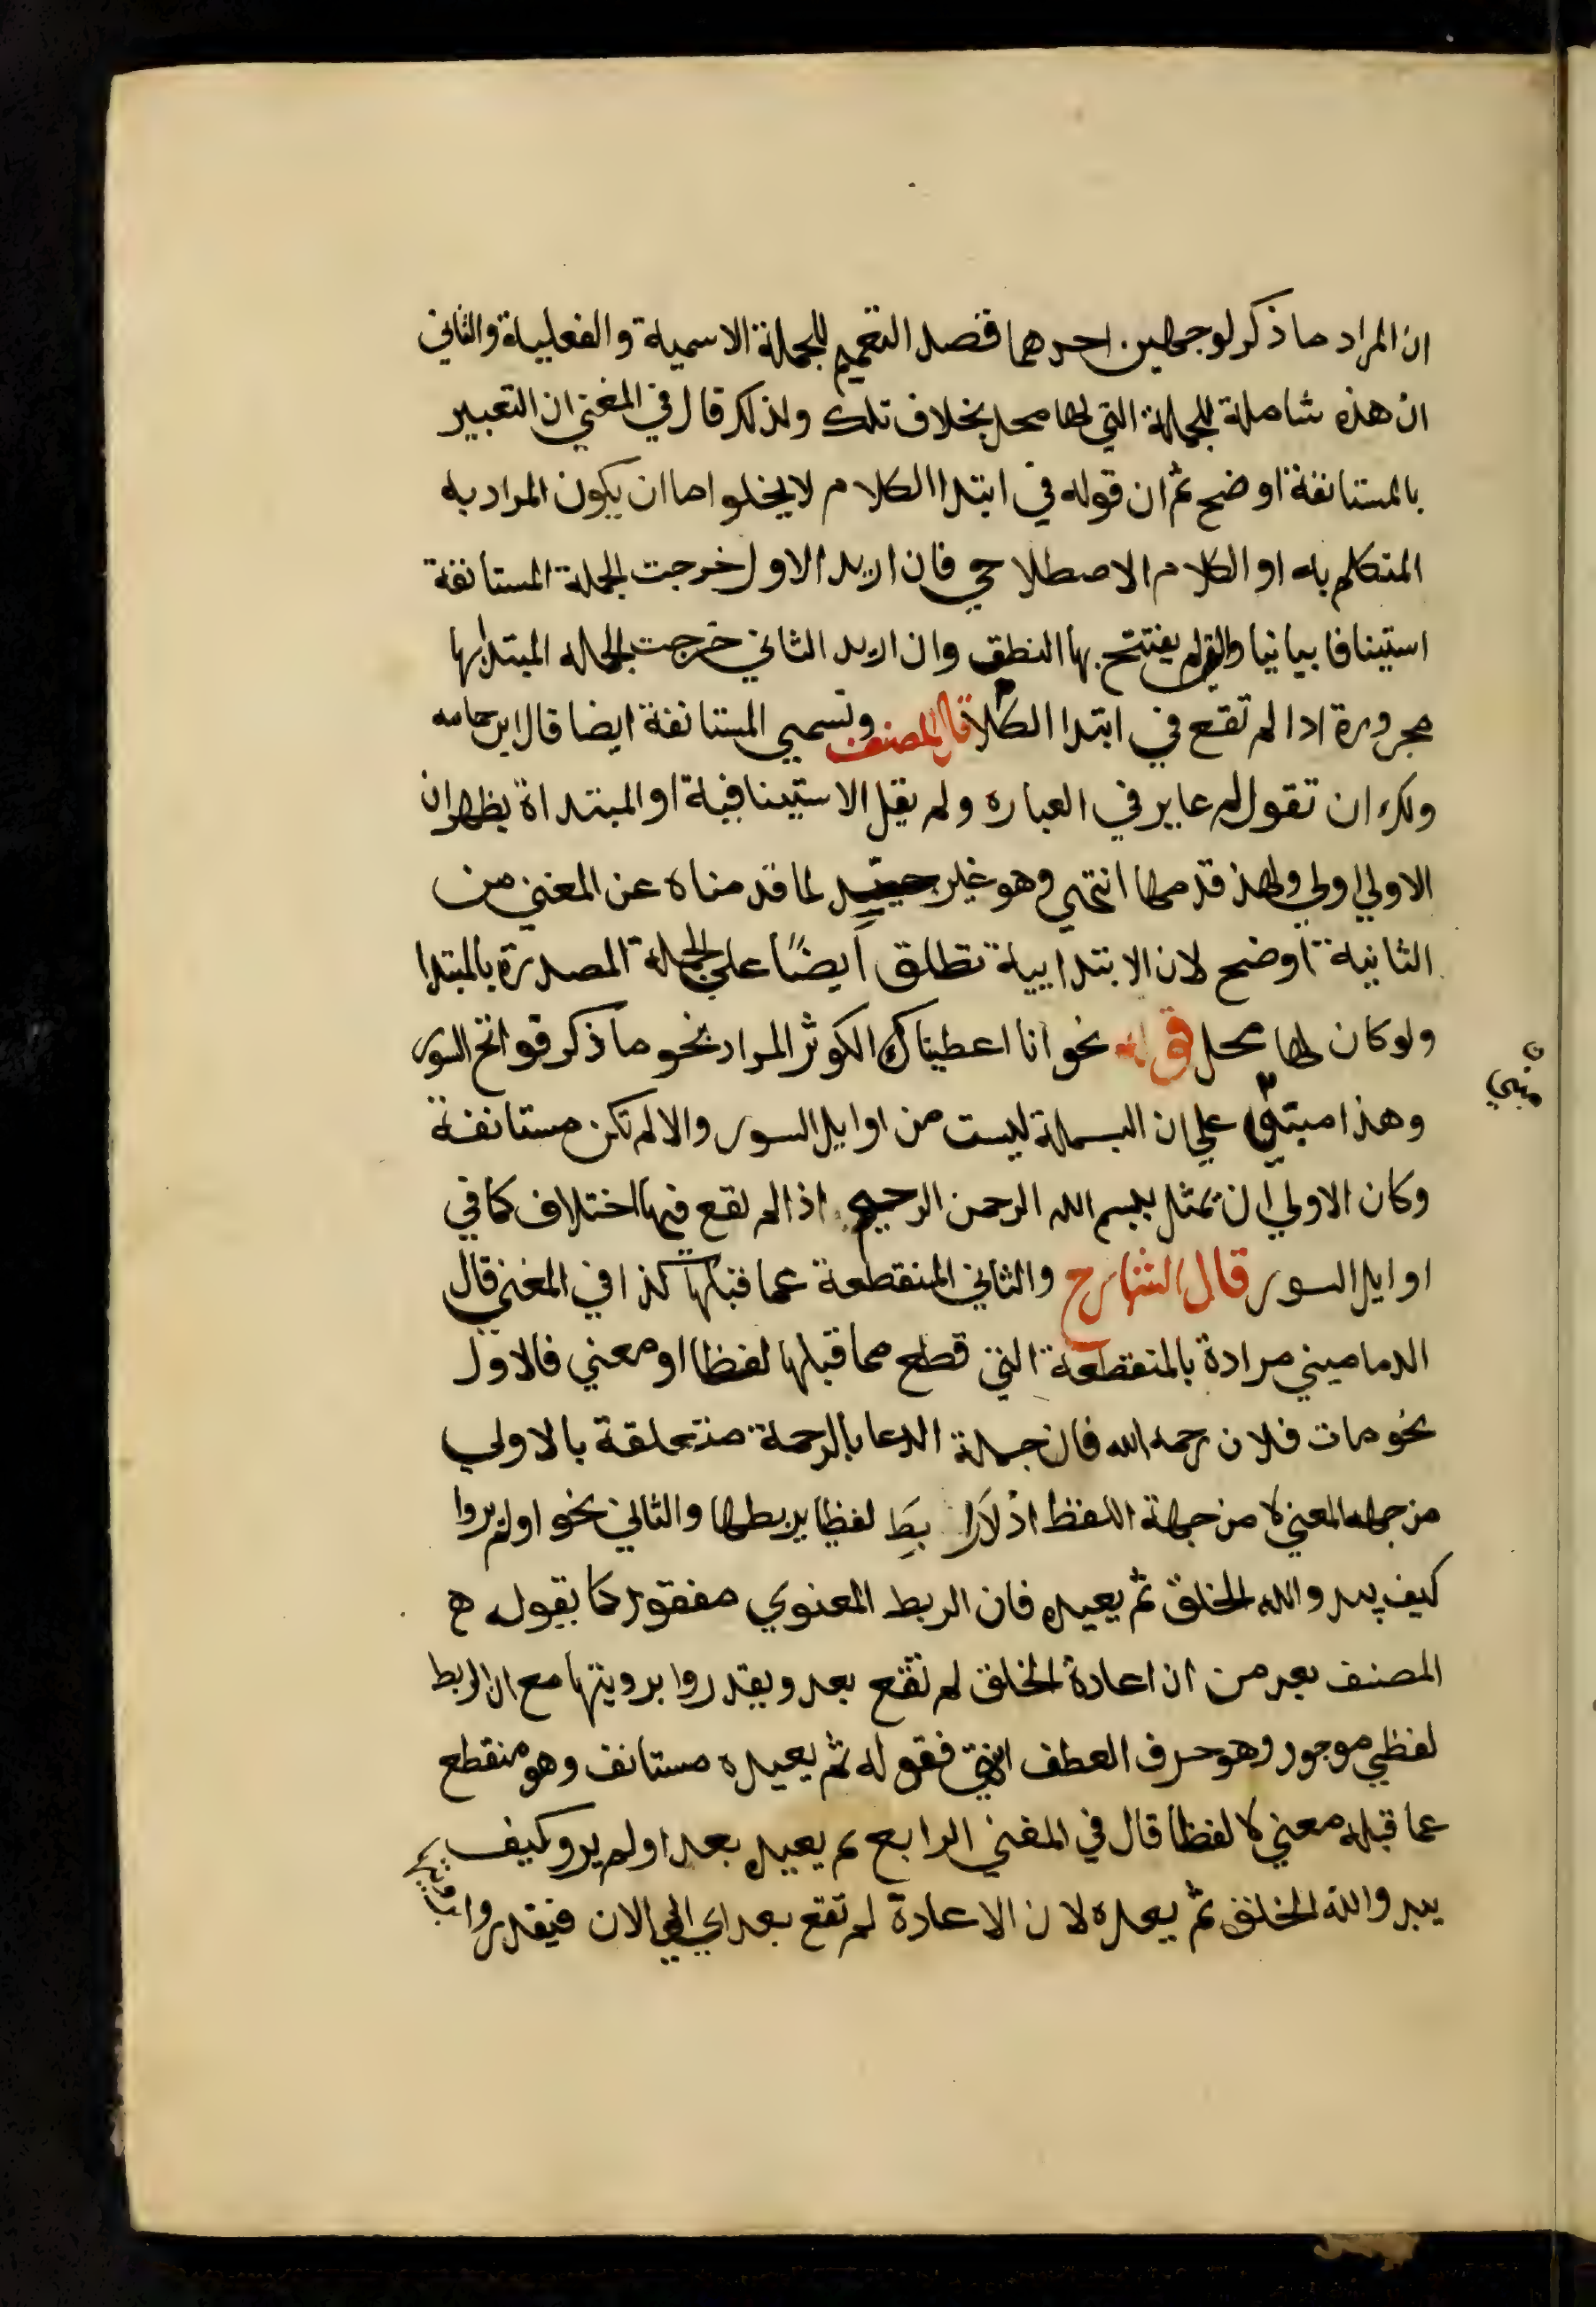 ان المراد ما ذكر لوجهين احدهما قصد التعميم للجملة الاسمية والفعلية والثاني
ان هذه شاملة للجملة التي لها محل بخلاف تلك ولذلك قال في المغني ان التعبير
بالمستانفة اوضح ثم ان قوله في ابتدا الكلام لا يخلو اما ان يكون المراد به
المتكلم به او الكلام الاصطلاحي فان اريد الاول خرجت الجملة المستانفة
استينافا بيانيا والتي لم يفتتح بها النطق وان اريد الثاني خرجت الجمله المبتدا بها
مجرورة اذا لم تقع في ابتدا الكلام قال المصنف وتسمي المستانفة ايضا قال ابن جماعه
ولك ان تقول لم عاير في العباره ولم يقل الاستينافية او المبتداة يظهر ان
الاولي اولي ولهذ قدمها انتهي وهو غير جيد لما قدمناه عن المغني من
الثانية اوضح لان الابتداييية تطلق ايضًا علي الجملة المصدرة بالمبتدا
ولو كان لها محل قوله نحو انا اعطيناك الكوثر المراد نحو ما ذكر فواتح السور
وهذا مبتني علي ان البسملة ليست من اوايل السور والا لم تكن مستانفة
مبني
وكان الاولي ان تمثل ببسم الله الرحمن الرحيم اذ الم يقع فيها اختلاف كما في
اوايل السور قال الشارح والثاني المنقطعة عما قبلها كذا في المغني قال
الدماميني مرادة بالمنقطعة التي قطع مما قبلها لفظا او معني فالاول
نحو مات فلان رحمه الله فان جملة الدعا بالرحمة متعلقة بالاولي
من جهه المعني لا من جهة اللفظ اذ لا رابط لفظيا يربطها والثاني نحو اولم يروا
كيف يبدو الله الخلق ثم يعيده فان الربط المعنوي مفقود كما يقوله ه
المصنف بعد من ان اعادة الخلق لم تقع بعد ويقدروا برويتها مع ان الربط
لفظي موجود وهو حرف العطف انتهي فقوله ثم يعيده مستانف وهو منقطع
عما قبله معني لا لفظا قال في المغني الرابع ثم يعيده بعد اولم يرو كيف
يبدو الله الخلق ثم يعيده لان الاعادة لم تقع بعد اي الي الان فيقدروا برويتها